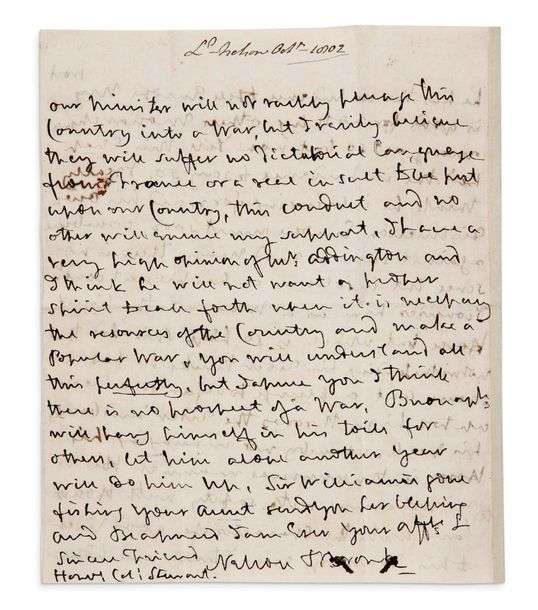 Ld. Nelson Octr. 1802
our Minister will not rashly plunge this
Country into a War, but I really believe
they will suffer no Dictatorial Language
from France or a real insult to be put
upon our Country, this conduct and no
other will ensure my support, I have a
very high opinion of Mr. Addington and
I think he will not want a proper
spirit to call forth when it is necessary
the resources of the Country and make a
Popular War, you will understand all
this perfectly, but I assure you I think
there is no prospect of a War, Buonapte
will hang himself in his toils for
others, let him alone another year
will do him up, Sir William is gone
fishing your Aunt sends you her blessing
and I am Ever Your affte &
Sincere Friend
Nelson & Bronte
Honble Col: Stewart.